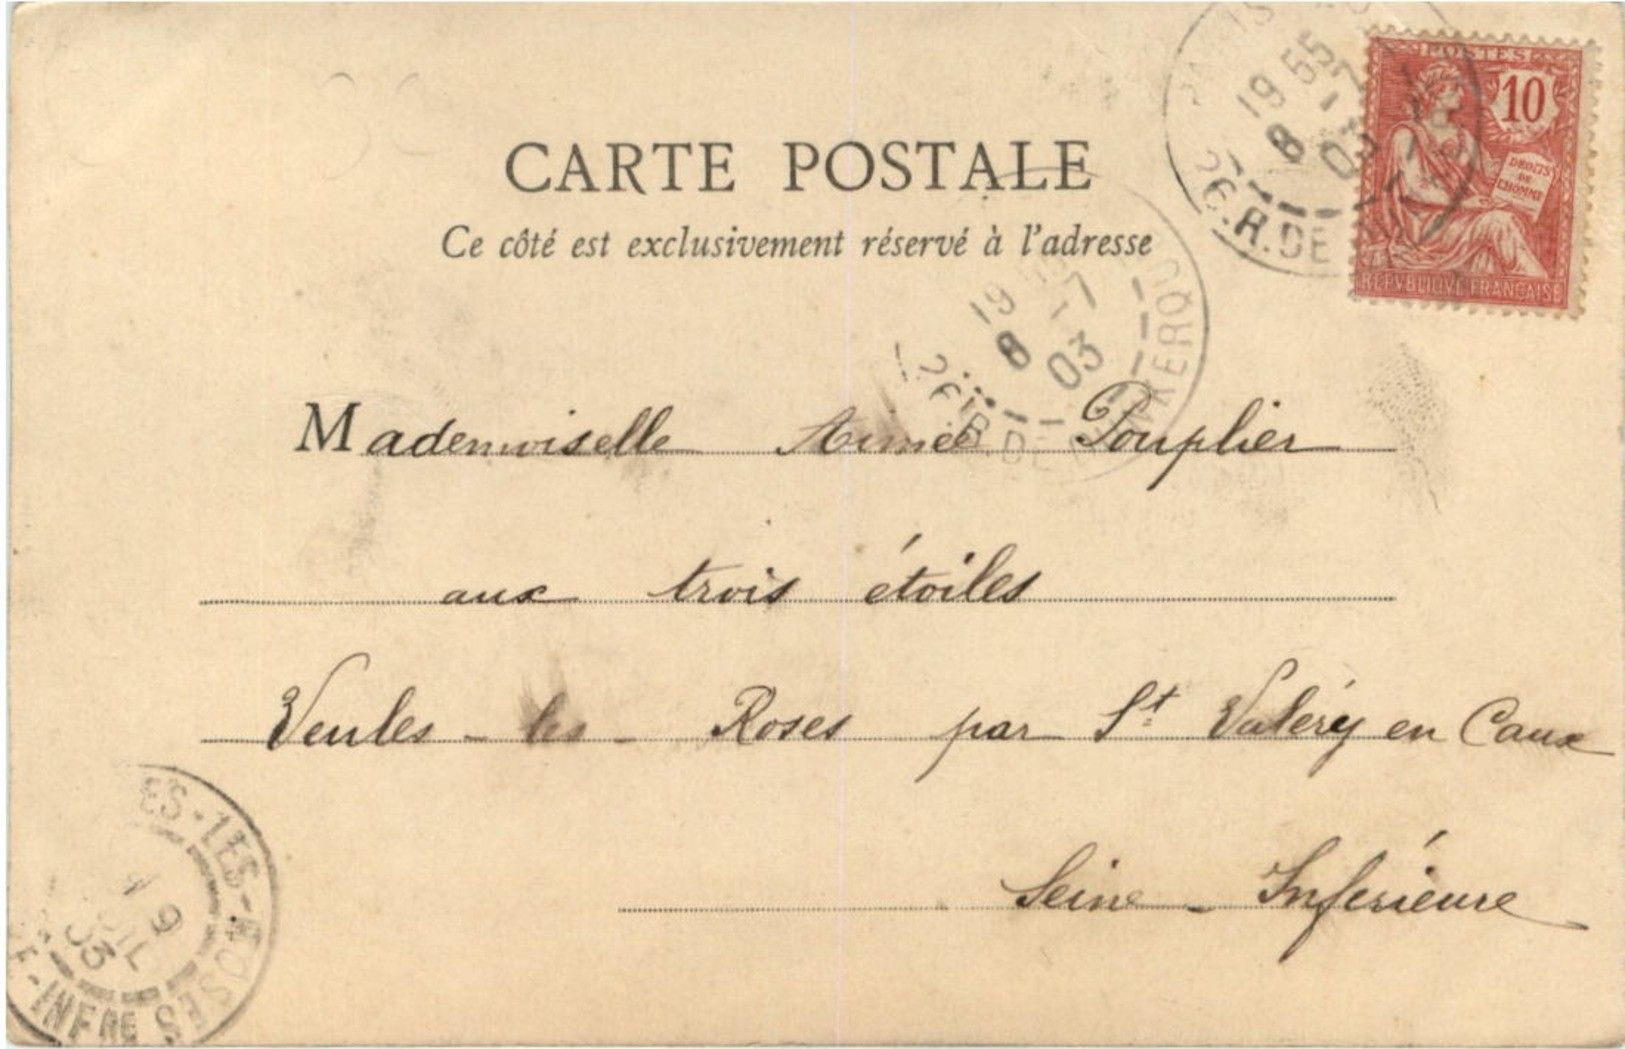 POSTES
10
DROITS
DE
L'HOMME
REPVBLIQVE FRANÇAISE
19 55
8 -7
03
26. R. DE
CARTE POSTALE
Ce côté est exclusivement réservé à l'adresse
19
8 -7
03
26. R. DE
Mademoiselle Aimée Pouplier
aux trois étoiles
Veules-les-Roses par St Valéry en Caux
Seine-Inférieure
ES-LES-ROSES
9
JUIL
03
E-INFRE